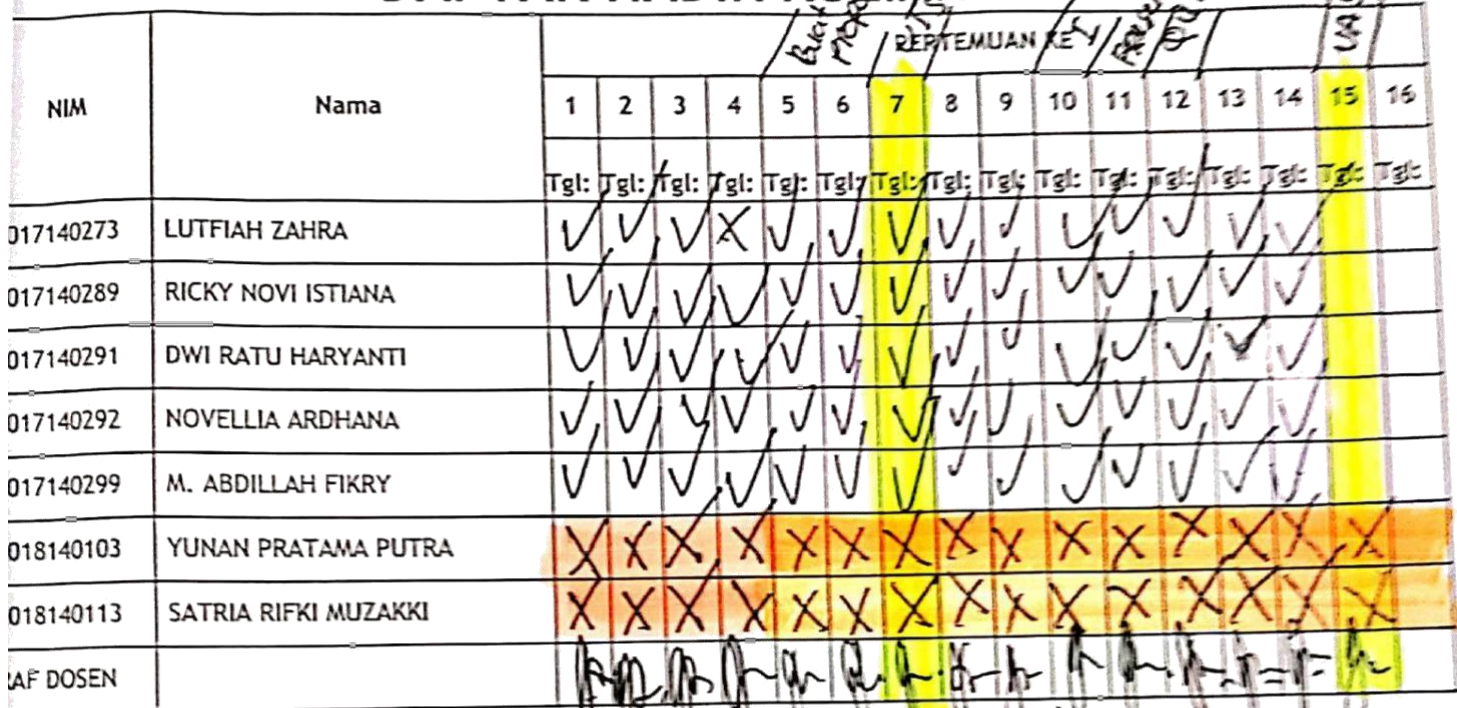 PERTEMUAN KE
NIM Nama 1 2 3 4 5 6 7 8 9 10 11 12 13 14 15 16
Tgl: Tgl: Tgl: Tgl: Tgl: Tgl: Tgl: Tgl: Tgl: Tgl: Tgl: Tgl: Tgl: Tgl: Tgl: Tgl:
017140273 LUTFIAH ZAHRA
017140289 RICKY NOVI ISTIANA
017140291 DWI RATU HARYANTI
017140292 NOVELLIA ARDHANA
017140299 M. ABDILLAH FIKRY
018140103 YUNAN PRATAMA PUTRA
018140113 SATRIA RIFKI MUZAKKI
AF DOSEN